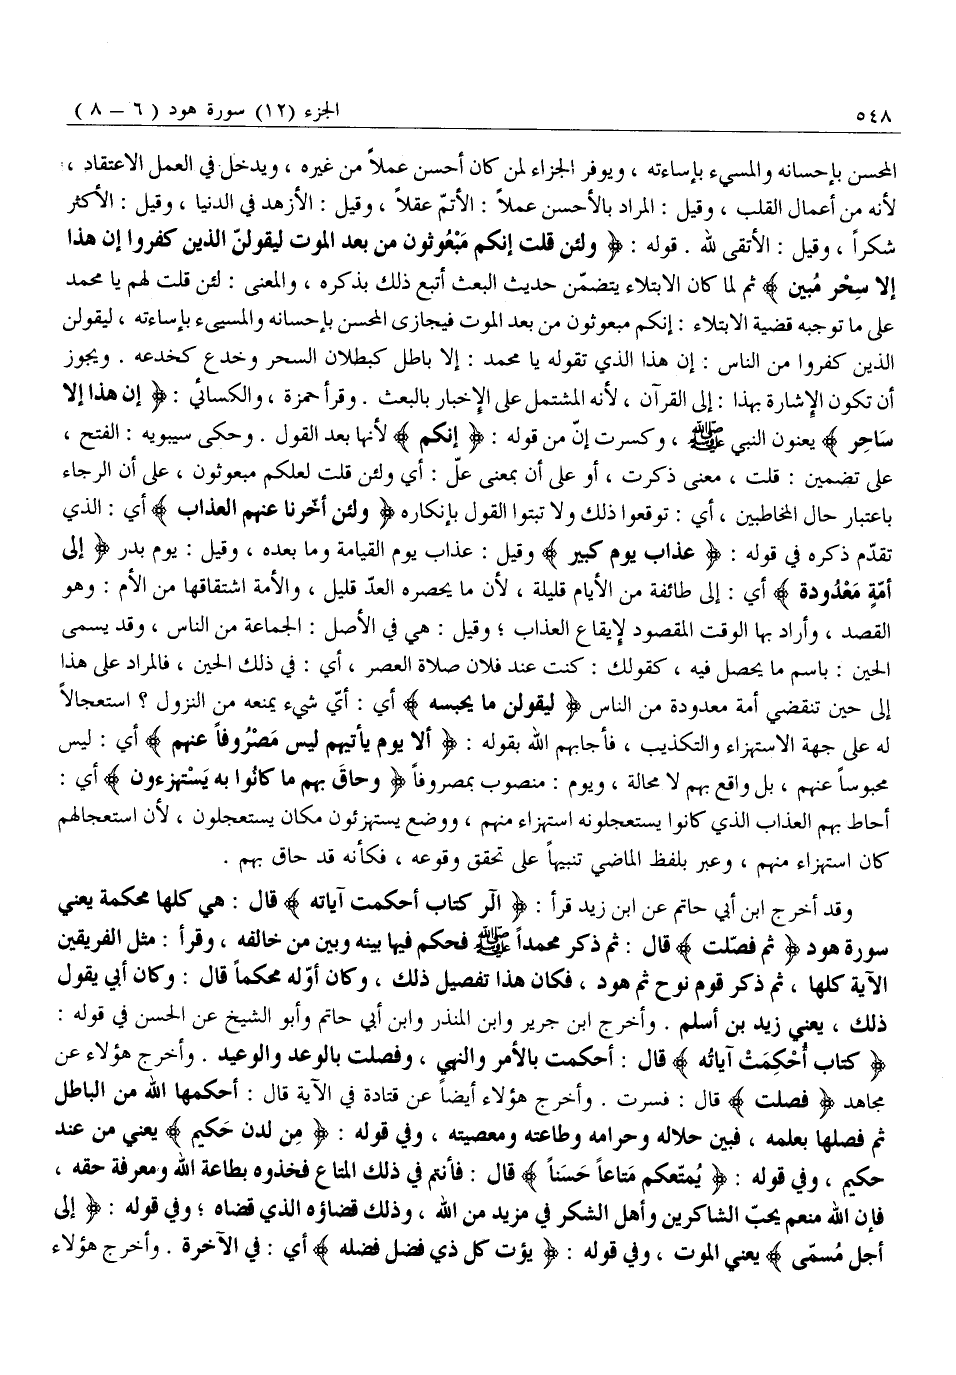 ٥٤٨
الجزء (١٢) سورة هود ( ٦ – ٨ )
المحسن بإحسانه والمسيء بإساءته ، ويوفر الجزاء لمن كان أحسن عملاً من غيره ، ويدخل في العمل الاعتقاد ،
لأنه من أعمال القلب ، وقيل : المراد بالأحسن عملاً : الأتمّ عقلاً ، وقيل : الأزهد في الدنيا ، وقيل : الأكثر
شكراً ، وقيل : الأتقى لله . قوله : ﴿ ولئن قلت إنكم مَبْعُوثون من بعد الموت ليقولنّ الذين كفروا إن هذا
إلا سِحْر مُبين ﴾ ثم لما كان الابتلاء يتضمّن حديث البعث أتبع ذلك بذكره ، والمعنى : لئن قلت لهم يا محمد
على ما توجبه قضية الابتلاء : إنكم مبعوثون من بعد الموت فيجازى المحسن بإحسانه والمسيىء بإساءته ، ليقولن
الذين كفروا من الناس : إن هذا الذي تقوله يا محمد : إلا باطل كبطلان السحر وخدع كخدعه . ويجوز
أن تكون الإشارة بهذا : إلى القرآن ، لأنه المشتمل على الإخبار بالبعث . وقرأ حمزة ، والكسائي : ﴿ إن هذا إلا
سَاحِر ﴾ يعنون النبي ﷺ ، وكسرت إنّ من قوله : ﴿ إنكم ﴾ لأنها بعد القول . وحكى سيبويه : الفتح ،
على تضمين : قلت ، معنى ذكرت ، أو على أن بمعنى علّ : أي ولئن قلت لعلكم مبعوثون ، على أن الرجاء
باعتبار حال المخاطبين ، أي : توقعوا ذلك ولا تبتوا القول بإنكاره ﴿ ولئن أخّرنا عنهم العذاب ﴾ أي : الذي
تقدّم ذكره في قوله : ﴿ عذاب يوم كبير ﴾ وقيل : عذاب يوم القيامة وما بعده ، وقيل : يوم بدر ﴿ إلى
أمّةٍ مَعْدُودة ﴾ أي : إلى طائفة من الأيام قليلة ، لأن ما يحصره العدّ قليل ، والأمة اشتقاقها من الأم : وهو
القصد ، وأراد بها الوقت المقصود لإيقاع العذاب ؛ وقيل : هي في الأصل : الجماعة من الناس ، وقد يسمى
الحين : باسم ما يحصل فيه ، كقولك : كنت عند فلان صلاة العصر ، أي : في ذلك الحين ، فالمراد على هذا
إلى حين تنقضي أمة معدودة من الناس ﴿ ليقولن ما يحبسه ﴾ أي : أيّ شيء يمنعه من النزول ؟ استعجالاً
له على جهة الاستهزاء والتكذيب ، فأجابهم الله بقوله : ﴿ ألا يوم يأتيهم ليس مَصْرُوفاً عنهم ﴾ أي : ليس
محبوساً عنهم ، بل واقع بهم لا محالة ، ويوم : منصوب بمصروفاً ﴿ وحاقَ بهم ما كانُوا به يَسْتهزءون ﴾ أي :
أحاط بهم العذاب الذي كانوا يستعجلونه استهزاء منهم ، ووضع يستهزئون مكان يستعجلون ، لأن استعجالهم
كان استهزاء منهم ، وعبر بلفظ الماضي تنبيهاً على تحقق وقوعه ، فكأنه قد حاق بهم .
وقد أخرج ابن أبي حاتم عن ابن زيد قرأ : ﴿ الٓر كتاب أحكمت آياته ﴾ قال : هي كلها محكمة يعني
سورة هود ﴿ ثم فصّلت ﴾ قال : ثم ذكر محمداً ﷺ فحكم فيها بينه وبين من خالفه ، وقرأ : مثل الفريقين
الآية كلها ، ثم ذكر قوم نوح ثم هود ، فكان هذا تفصيل ذلك ، وكان أوّله محكماً قال : وكان أبي يقول
ذلك ، يعني زيد بن أسلم . وأخرج ابن جرير وابن المنذر وابن أبي حاتم وأبو الشيخ عن الحسن في قوله :
﴿ كتاب أُحْكِمَتْ آياتُه ﴾ قال : أحكمت بالأمر والنهي ، وفصلت بالوعد والوعيد . وأخرج هؤلاء عن
مجاهد ﴿ فصلت ﴾ قال : فسرت . وأخرج هؤلاء أيضاً عن قتادة في الآية قال : أحكمها الله من الباطل
ثم فصلها بعلمه ، فبين حلاله وحرامه وطاعته ومعصيته ، وفي قوله : ﴿ مِن لدن حَكيم ﴾ يعني من عند
حكيم ، وفي قوله : ﴿ يُمتّعكم مَتاعاً حَسَناً ﴾ قال : فأنتم في ذلك المتاع فخذوه بطاعة الله ومعرفة حقه ،
فإن الله منعم يحبّ الشاكرين وأهل الشكر في مزيد من الله ، وذلك قضاؤه الذي قضاه ؛ وفي قوله : ﴿ إلى
أجل مُسمّى ﴾ يعني الموت ، وفي قوله : ﴿ يؤت كل ذي فضل فضله ﴾ أي : في الآخرة . وأخرج هؤلاء